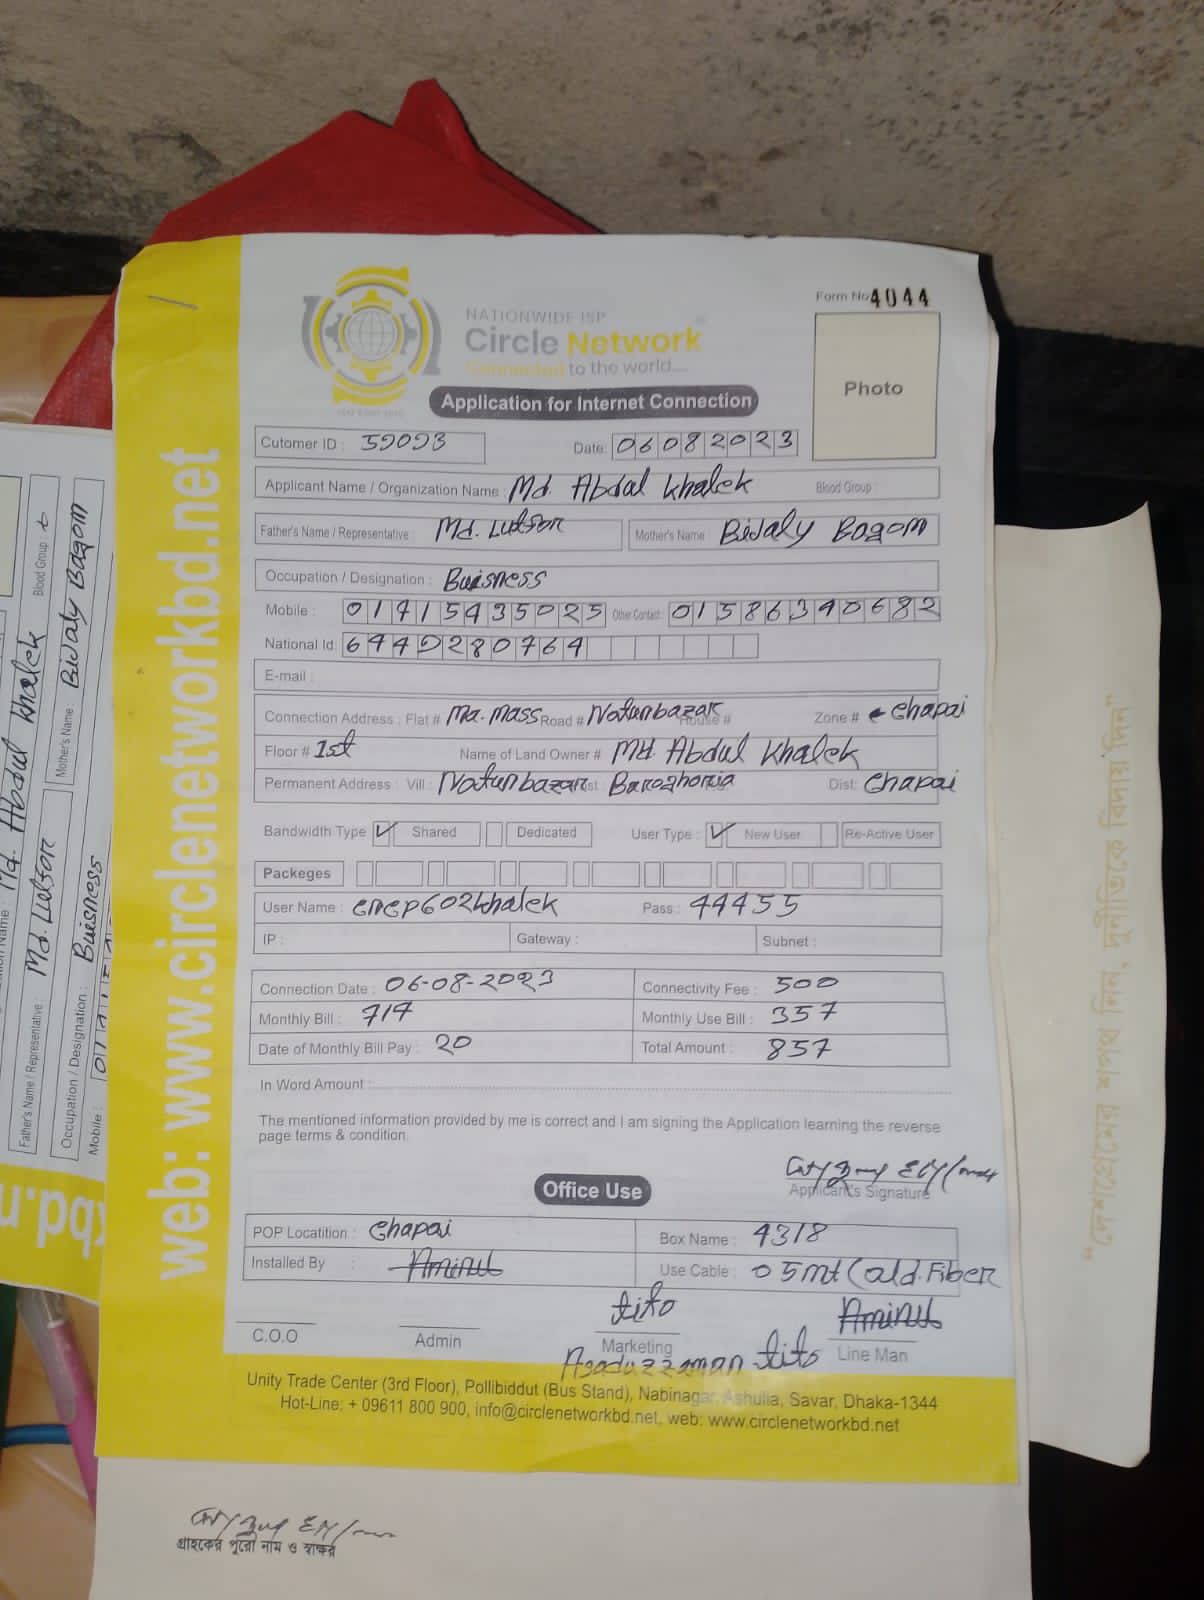 NATIONWIDE ISP
Circle Network
Connected to the world....
Form No 4044
Photo
Application for Internet Connection
Cutomer ID : 59093
Date: 06082023
Applicant Name / Organization Name : Md. Abdal Khalek
Blood Group :
Father's Name / Representative : Md. Lutson
Mother's Name Bidaly Bagom
Occupation / Designation : Buisness
Mobile : 01715435025 Other Contact: 01586390682
National Id: 6449280764
E-mail :
Connection Address : Flat # Ma. Mass Road # Natunbazar House # Zone # Chapai
Floor # 1st Name of Land Owner # Md. Abdul Khalek
Permanent Address : Vill : Natunbazar Baroghoria Dist: Chapai
Bandwidth Type ✓ Shared Dedicated User Type : ✓ New User Re-Active User
Packeges
User Name : cncp602khalek Pass : 44455
IP : Gateway : Subnet :
Connection Date : 06-08-2023 Connectivity Fee : 500
Monthly Bill : 714 Monthly Use Bill : 357
Date of Monthly Bill Pay : 20 Total Amount : 857
In Word Amount :
The mentioned information provided by me is correct and I am signing the Application learning the reverse
page terms & condition.
Applicant's Signature
Office Use
POP Locatition : Chapai Box Name : 4318
Installed By : Aminul Use Cable : 05mt (old. Fiber
tito Aminul
C.O.O Admin Marketing Line Man
Asaduzzaman tito
Unity Trade Center (3rd Floor), Pollibiddut (Bus Stand), Nabinagar, Ashulia, Savar, Dhaka-1344
Hot-Line: + 09611 800 900, info@circlenetworkbd.net, web: www.circlenetworkbd.net
web: www.circlenetworkbd.net
গ্রাহকের পুরো নাম ও স্বাক্ষর
"দেশপ্রেমের শপথ নিন, দুর্নীতিকে বিদায় দিন"
Blood Group :
Md. Abdul Khalek
Father's Name / Representative : Md. Lutson
Mother's Name Bidaly Bagom
Occupation / Designation : Buisness
Mobile :
kbd.n